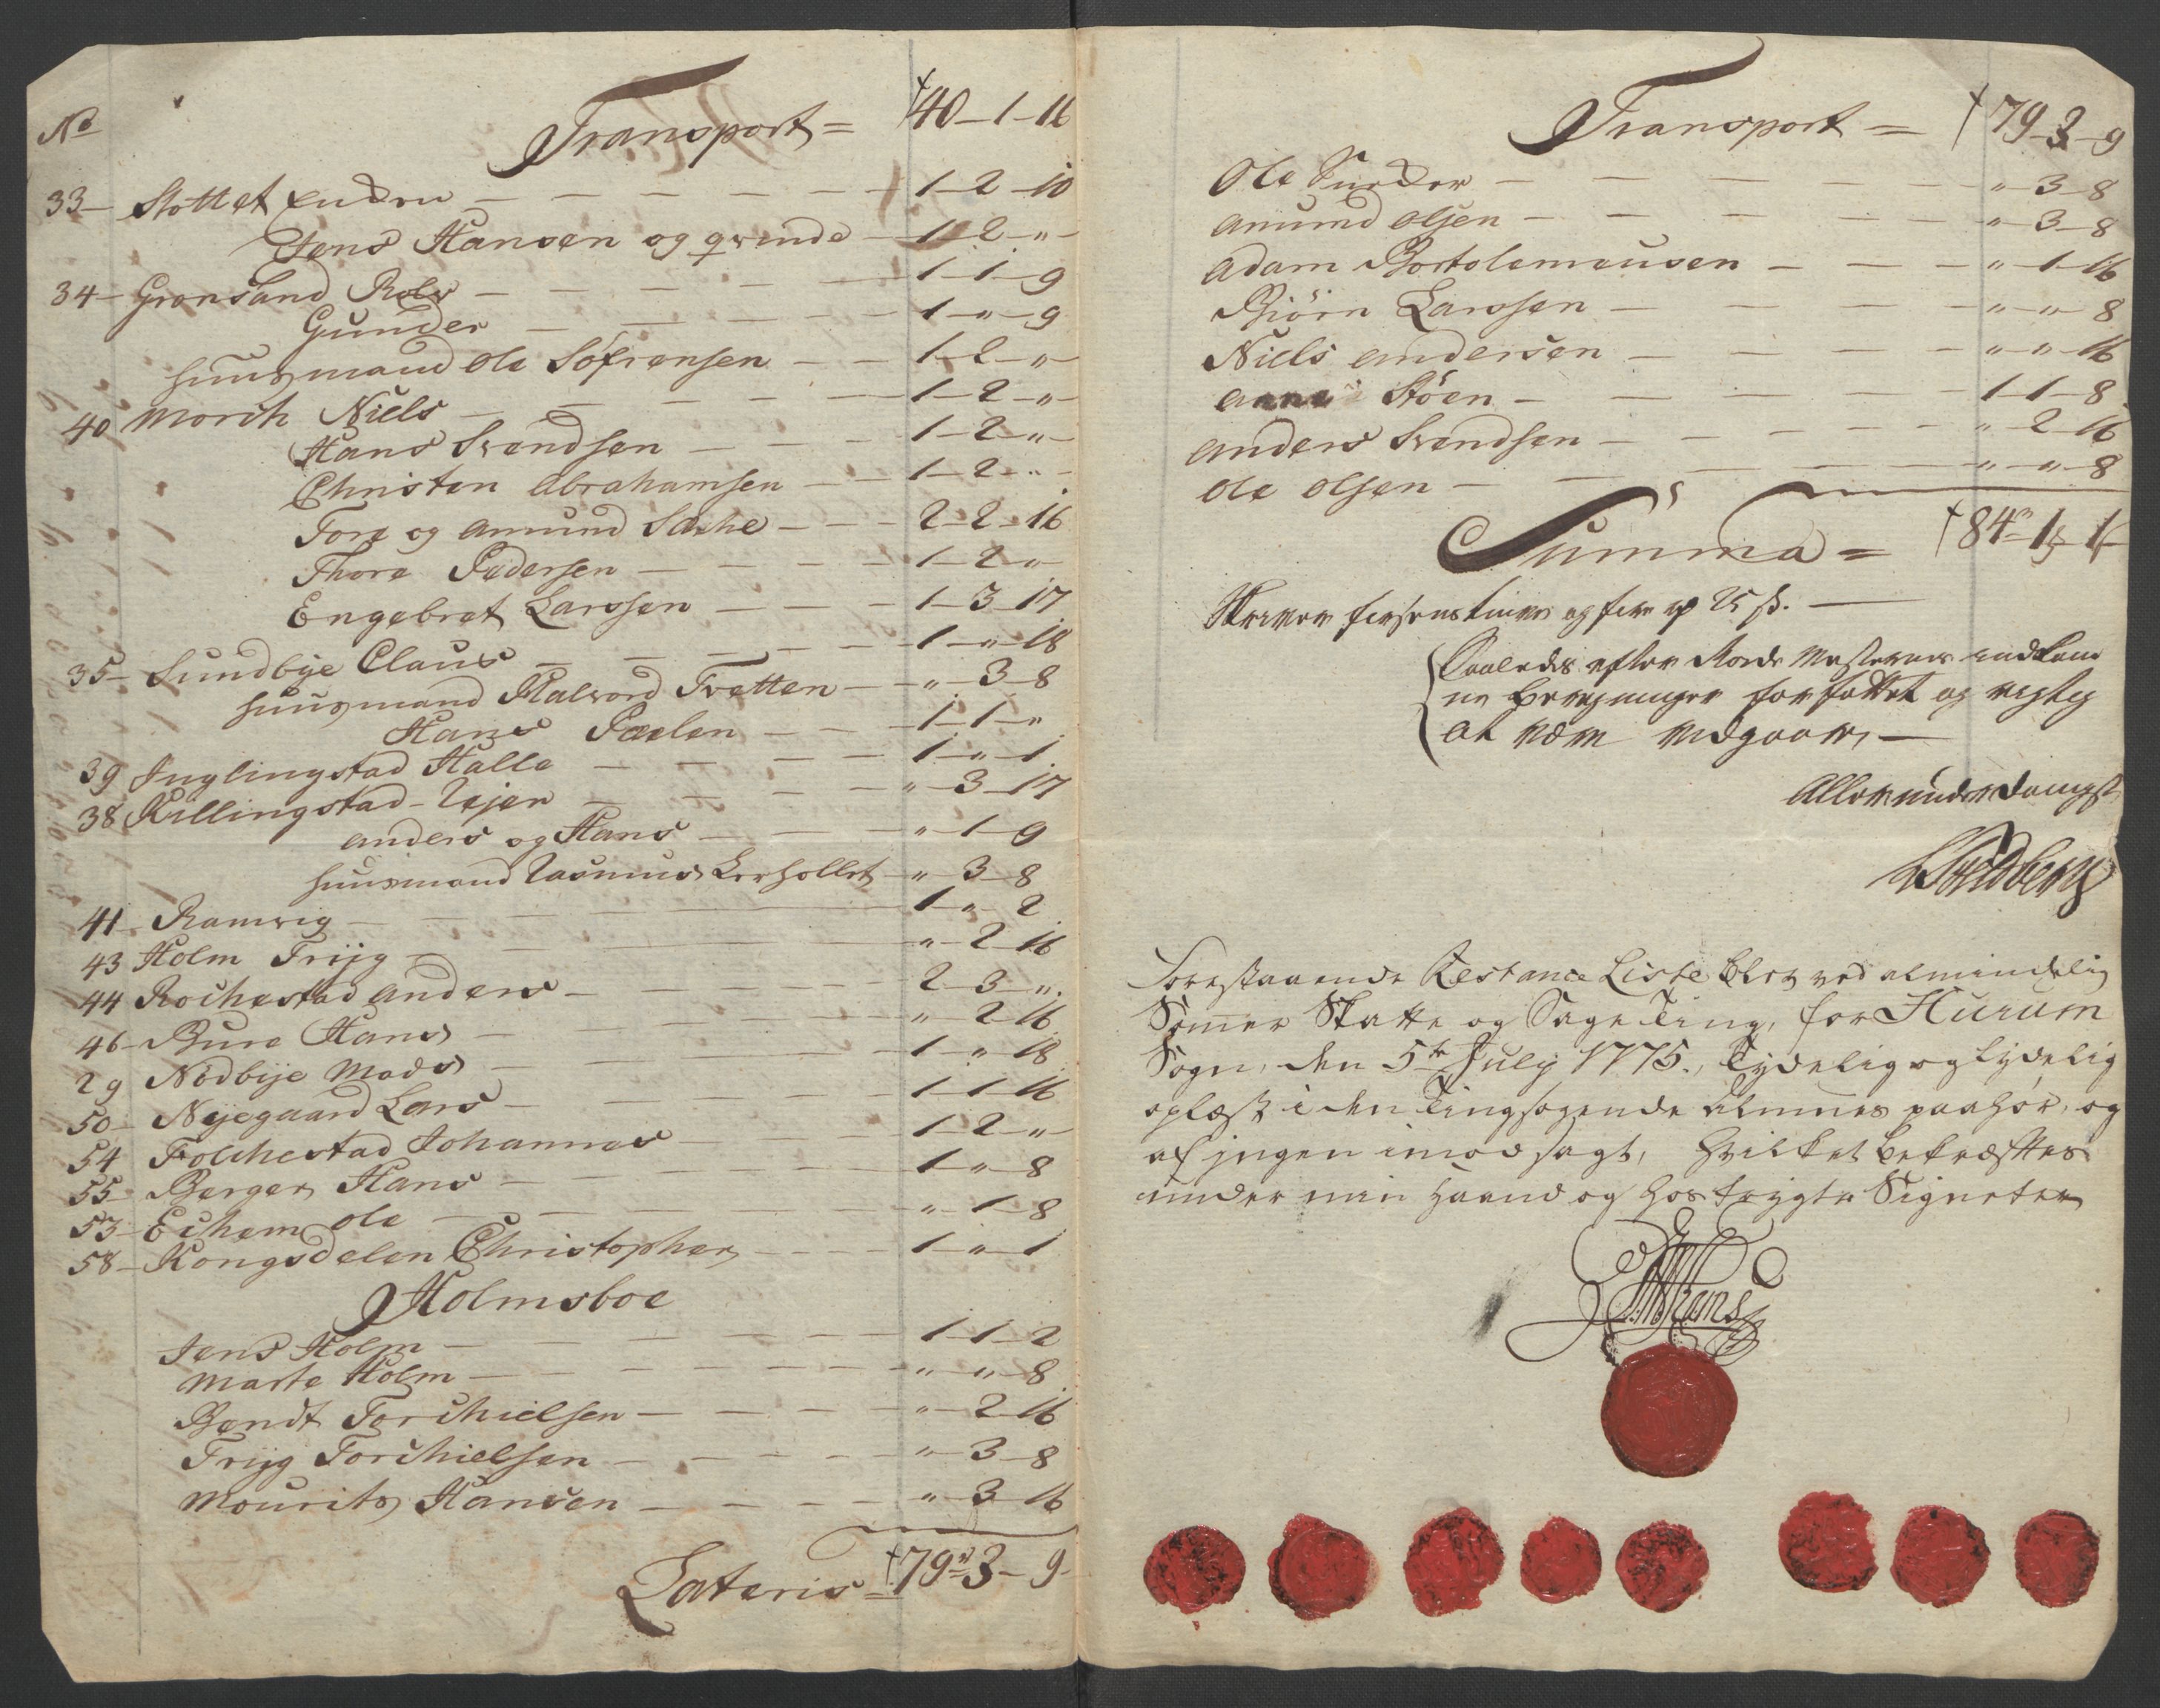 No
Transport = 40-1-16
33- Slottet Endru - - - - - 1-2-10
Jens Hansen og qvinde - 1-2-"-
34- Grønsand Rolv - - - - - 1-1-9
Gunder - - - - 1-"-9
huusmand Ole Søfrensen - - 1-2-"-
40 Morch Niels - - - - - 1-2-"-
Hans Svendsen - - - 1-2-"-
Christen Abrahamsen - - 1-2-"-
Tore og Amund Sache - - - 2-2-16
Thore Pedersen - - - - 1-2-"
Engebret Larssen - - - 1-3-17
35- Sundbye Claus - - - - - 1-"-18
huusmand Halvord Tvetten - "-3-8
Hans Pælen - - - 1-1-"
39 Inglingstad Halle - - - - 1-"-1
38 Killingstad - Rejer - - - - "-3-17
Anders og Hans - - - "-1-9
huusmand Rasmus Lerhollet - "-3-8
41- Ramvig - - - - - 1-"-2
43 Holm Tryg - - - - "-2-16
44 Rochestad Anders - - - - 2-3-"
46- Bure Hans - - - - "-2-16
29 Nødbye Mads - - - - 1-"-18
50- Nyegaard Lars - - - - 1-1-16
54 Folchestad Johannes - - - 1-2-"-
55- Berger Hans - - - - 1-"-8
53- Echem Ole - - - - "-1-8
58- Kongsdelen Christopher - - 1-"-1
Holmsboe
Jens Holm - - - - - 1-1-2
Marte Holm - - - - - "-"-8
Bendt Torchielsen - - - - "-2-16
Tryg Torchielsen - - - - "-3-8
Mourits Hansen - - - - "-3-16
Lateris = 79-3-9
Transport = 79-3-9
Ole - - - - - "-3-8
Amund Olsen - - - - - "-3-8
Adam Bortolomeusen - - - "-1-16
Biørn Larssen - - - - "-"-8
Niels Andersen - - - - "-"-16
Anne Støen - - - - 1-1-8
Anders Svendsen - - - - - "-2-16
Ole Olsen - - - - - "-"-8
Summa = 84-1-1
og fire 25 ß. -
Saaledes efter
forfattet og rigtig
at være vedgaaer, -
Allerunderdanigst
Forestaaende Restance Liste blev ved almindelig
Sommer Skatte og Sage Ting, for Hurum
Sogn, den 5te July 1775., Tydelig og lydelig
oplæst i den Tingsøgende Almues paahør, og
af ingen imodsagt, hvilket bekræftes
under min Haand og hostrygte Signeter